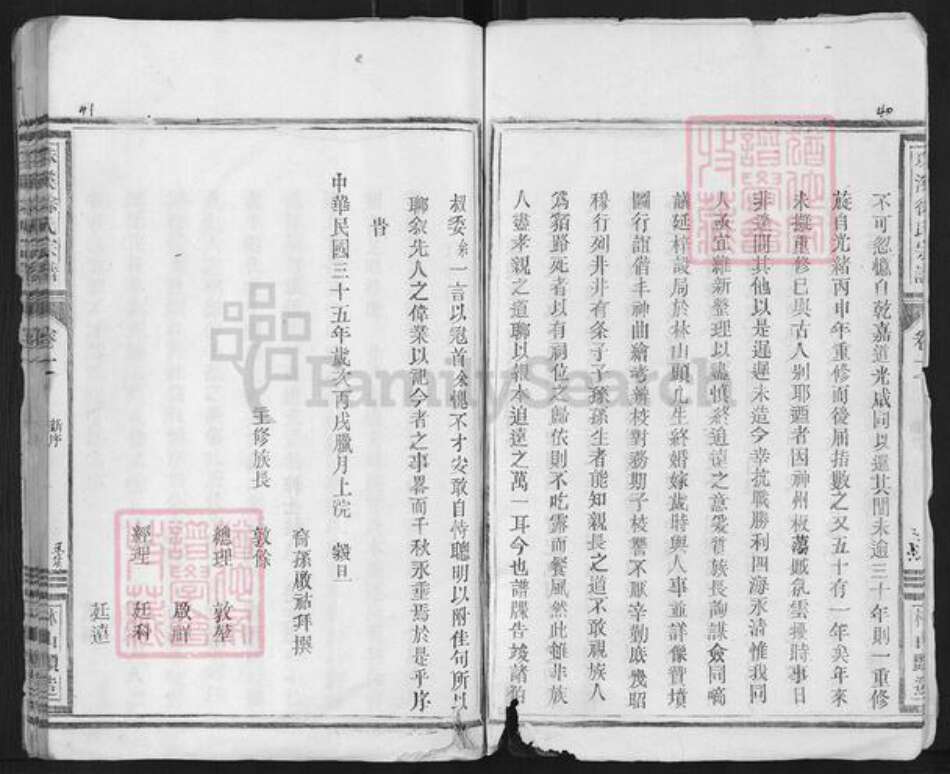 40
不可忽憶自乾嘉道光咸同以還其間未逾三十年則一重修
族自光緒丙申年重修而後屈指數之又五十有一年矣年來
未擬重修已與古人别耶迺者因神州板蕩厭氛雲擾時事日
非遑問其他以是遲遲未造今幸抗戰勝利四海永清惟我同
人亟宜維新整理以盡慎終追遠之意爰質族長詢謀僉同嗃
越延梓設局於林山頭凡生終婚嫁歲時與人事並詳像贊墳
圖行誼借丰神曲繪考證校對務期子枝繁不厭辛勤底幾昭
穆行列井井有条子子孫孫生者能知親長之道不敢視族人
爲猶路死者以有祠位之歸依則不吃露而餐風然此雖非族
人盡孝親之道聊以報本追遠之萬一耳今也譜牒告竣諸伯
41
叔委余一言以冠首余愧不才安敢自恃聰明以附佳句所以
聊叙先人之偉業以記今者之事畧而千秋永垂焉於是乎序
旹
中華民國三十五年歲次丙戌臘月上院 穀旦
裔孫啟祜拜撰
主修族長 敦
總理 敦
啟鮮
經理 廷科
廷
氏宗譜
卷一
新序
林山頭
FamilySearch